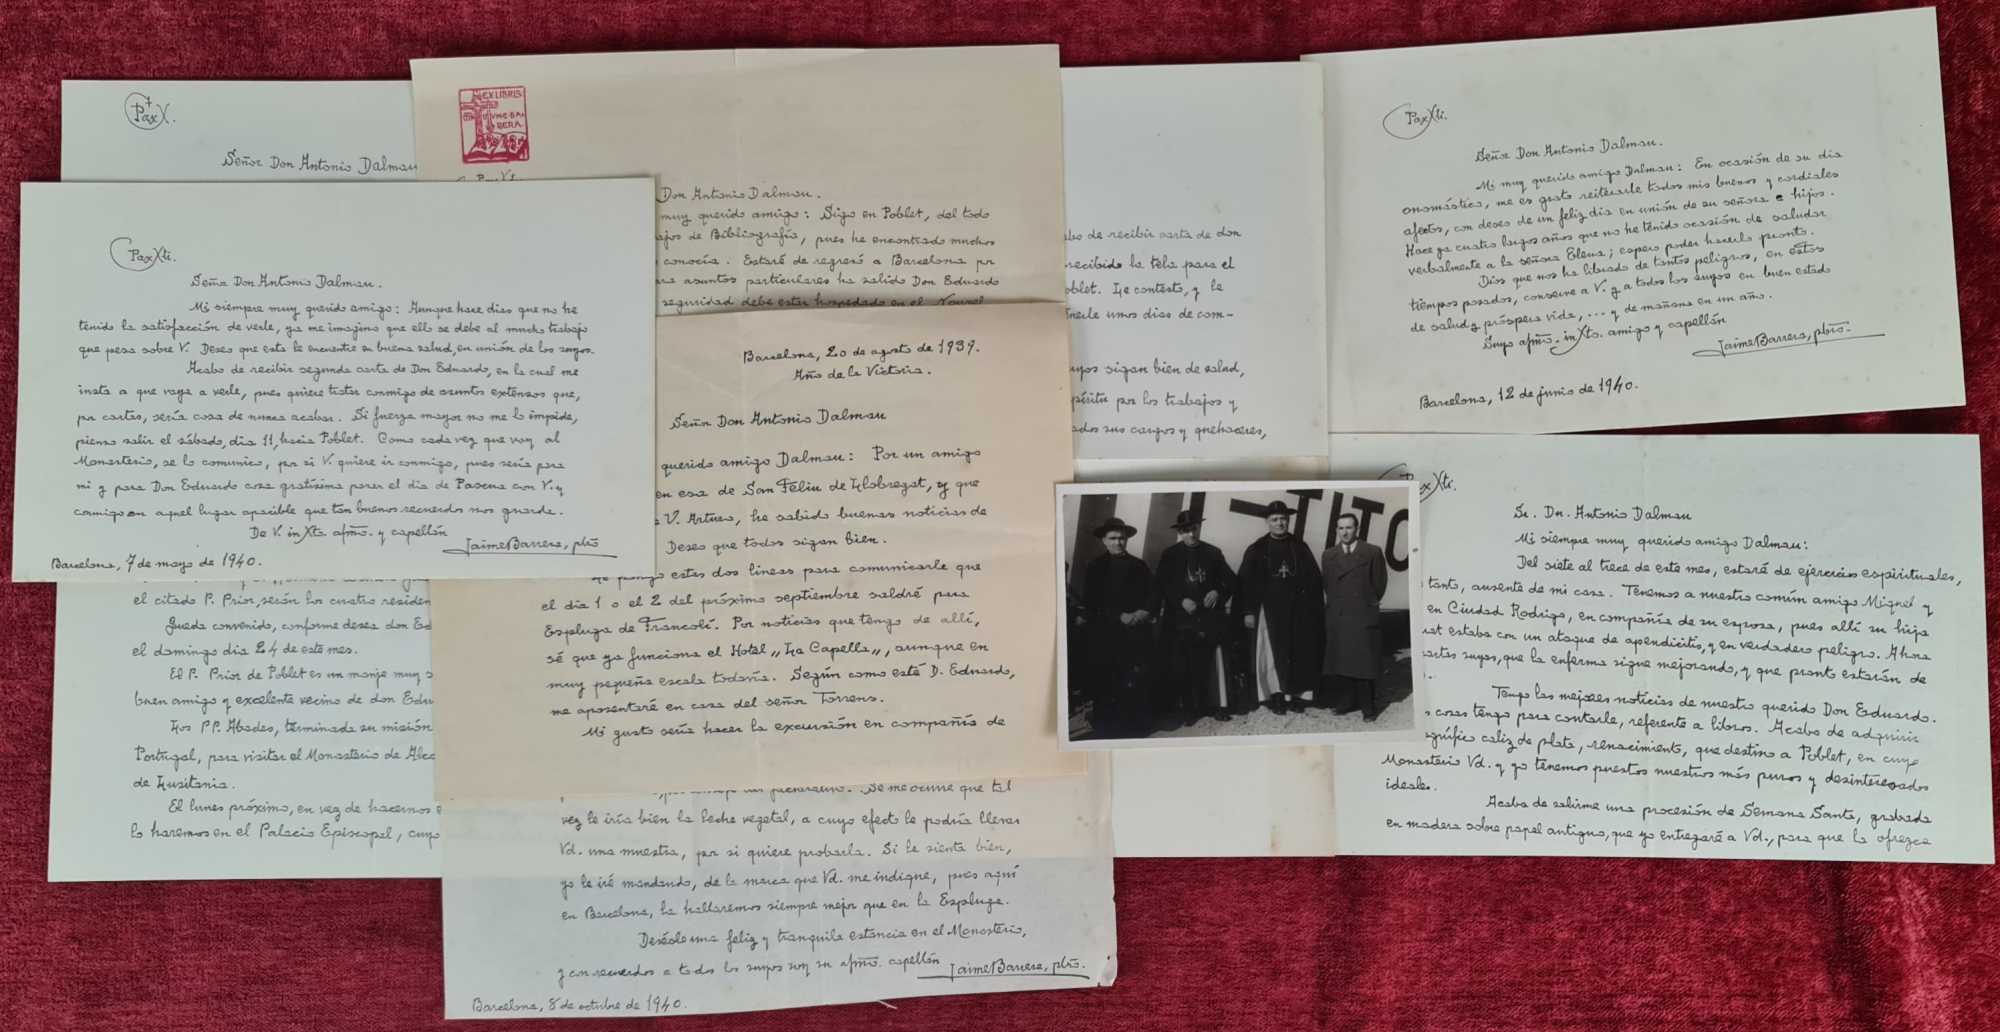 Pax X.
Señor Don Antonio Dalmau
Pax Xti.
Señor Don Antonio Dalmau.
Mi siempre muy querido amigo: Aunque hace días que no he
tenido la satisfacción de verle, ya me imagino que ello se debe al mucho trabajo
que pesa sobre V. Deseo que esta le encuentre en buena salud, en unión de los suyos.
Acabo de recibir segunda carta de Don Eduardo, en la cual me
insta a que vaya a verle, pues quiere tratar conmigo de asuntos extensos que,
por cartas, sería cosa de nunca acabar. Si fuerza mayor no me lo impide,
pienso salir el sábado, día 11, hacia Poblet. Como cada vez que voy al
Monasterio, se lo comunico, por si V. quiere ir conmigo, pues sería para
mi y para Don Eduardo cosa gratísima pasar el día de Pascua con V. y
conmigo en aquel lugar apacible que tan buenos recuerdos nos guarda.
De V. in Xto. afmo. y capellán
Jaime Barrera, pbro
Barcelona, 7 de mayo de 1940.
el citado P. Prior, serán los cuatro residen
Queda convenido, conforme desea don Ed
el domingo día 24 de este mes.
El P. Prior de Poblet es un monje muy s
buen amigo y excelente vecino de don Edu
Los PP. Abades, terminada su misión
Portugal, para visitar el Monasterio de Alco
de Lusitania.
El lunes próximo, en vez de hacernos e
lo haremos en el Palacio Episcopal, cuyo
EX LIBRIS
Pax Xti.
Don Antonio Dalmau.
muy querido amigo: Sigo en Poblet, del todo
ajos de Bibliografía, pues he encontrado muchos
conocía. Estaré de regreso a Barcelona por
ara asuntos particulares ha salido Don Eduardo
seguridad debe estar hospedado en el Nouvel
Barcelona, 20 de agosto de 1939.
Año de la Victoria.
Señor Don Antonio Dalmau
querido amigo Dalmau: Por un amigo
en esa de San Feliu de Llobregat, y que
a V. Arturo, he sabido buenas noticias de
Deseo que todos sigan bien.
Le pongo estas dos líneas para comunicarle que
el día 1 o el 2 del próximo septiembre saldré para
Espluga de Francolí. Por noticias que tengo de allí,
sé que ya funciona el Hotel „La Capella„, aunque en
muy pequeña escala todavía. Según como esté D. Eduardo,
me aposentaré en casa del señor Torrens.
Mi gusto sería hacer la excursión en compañía de
Se me ocurre que tal
vez le iría bien la leche vegetal, a cuyo efecto le podría llevar
Vd. una muestra, por si quiere probarla. Si le sienta bien,
yo le iré mandando, de la marca que Vd. me indique, pues aquí
en Barcelona, la hallaremos siempre mejor que en la Espluga.
Deséole una feliz y tranquila estancia en el Monasterio,
y con recuerdos a todos los suyos soy su afmo. capellán
Jaime Barrera, pbro.
Barcelona, 8 de octubre de 1940.
abo de recibir carta de don
recibido la tela para el
oblet. Le contesto, y le
nerle unos días de com-
uyos sigan bien de salud,
píritu por los trabajos y
ados sus cargos y quehaceres,
TITO
Pax Xti.
Señor Don Antonio Dalmau.
Mi muy querido amigo Dalmau: En ocasión de su día
onomástico, me es grato reiterarle todos mis buenos y cordiales
afectos, con deseo de un feliz día en unión de su señora e hijos.
Hace ya cuatro largos años que no he tenido ocasión de saludar
verbalmente a la señora Elena; espero poder hacerlo pronto.
Dios que nos ha librado de tantos peligros, en estos
tiempos pasados, conserve a V. y a todos los suyos en buen estado
de salud y próspera vida, ... y de mañana en un año.
Suyo afmo. in Xto. amigo y capellán
Jaime Barrera, pbro.
Barcelona, 12 de junio de 1940.
Pax Xti.
Sr. Dn. Antonio Dalmau
Mi siempre muy querido amigo Dalmau:
Del siete al trece de este mes, estaré de ejercicios espirituales,
tanto, ausente de mi casa. Tenemos a nuestro común amigo Miguel y
en Ciudad Rodrigo, en compañía de su esposa, pues allí su hija
estaba con un ataque de apendicitis, y en verdadero peligro. Ahora
cartas suyas, que la enferma sigue mejorando, y que pronto estarán de
Tengo las mejores noticias de nuestro querido Don Eduardo.
cosas tengo para contarle, referente a libros. Acabo de adquirir
gnífico cáliz de plata, renacimiento, que destino a Poblet, en cuyo
Monasterio Vd. y yo tenemos puestos nuestros más puros y desinteresados
ideales.
Acaba de salirme una procesión de Semana Santa, grabada
en madera sobre papel antiguo, que yo entregaré a Vd., para que la ofrezca